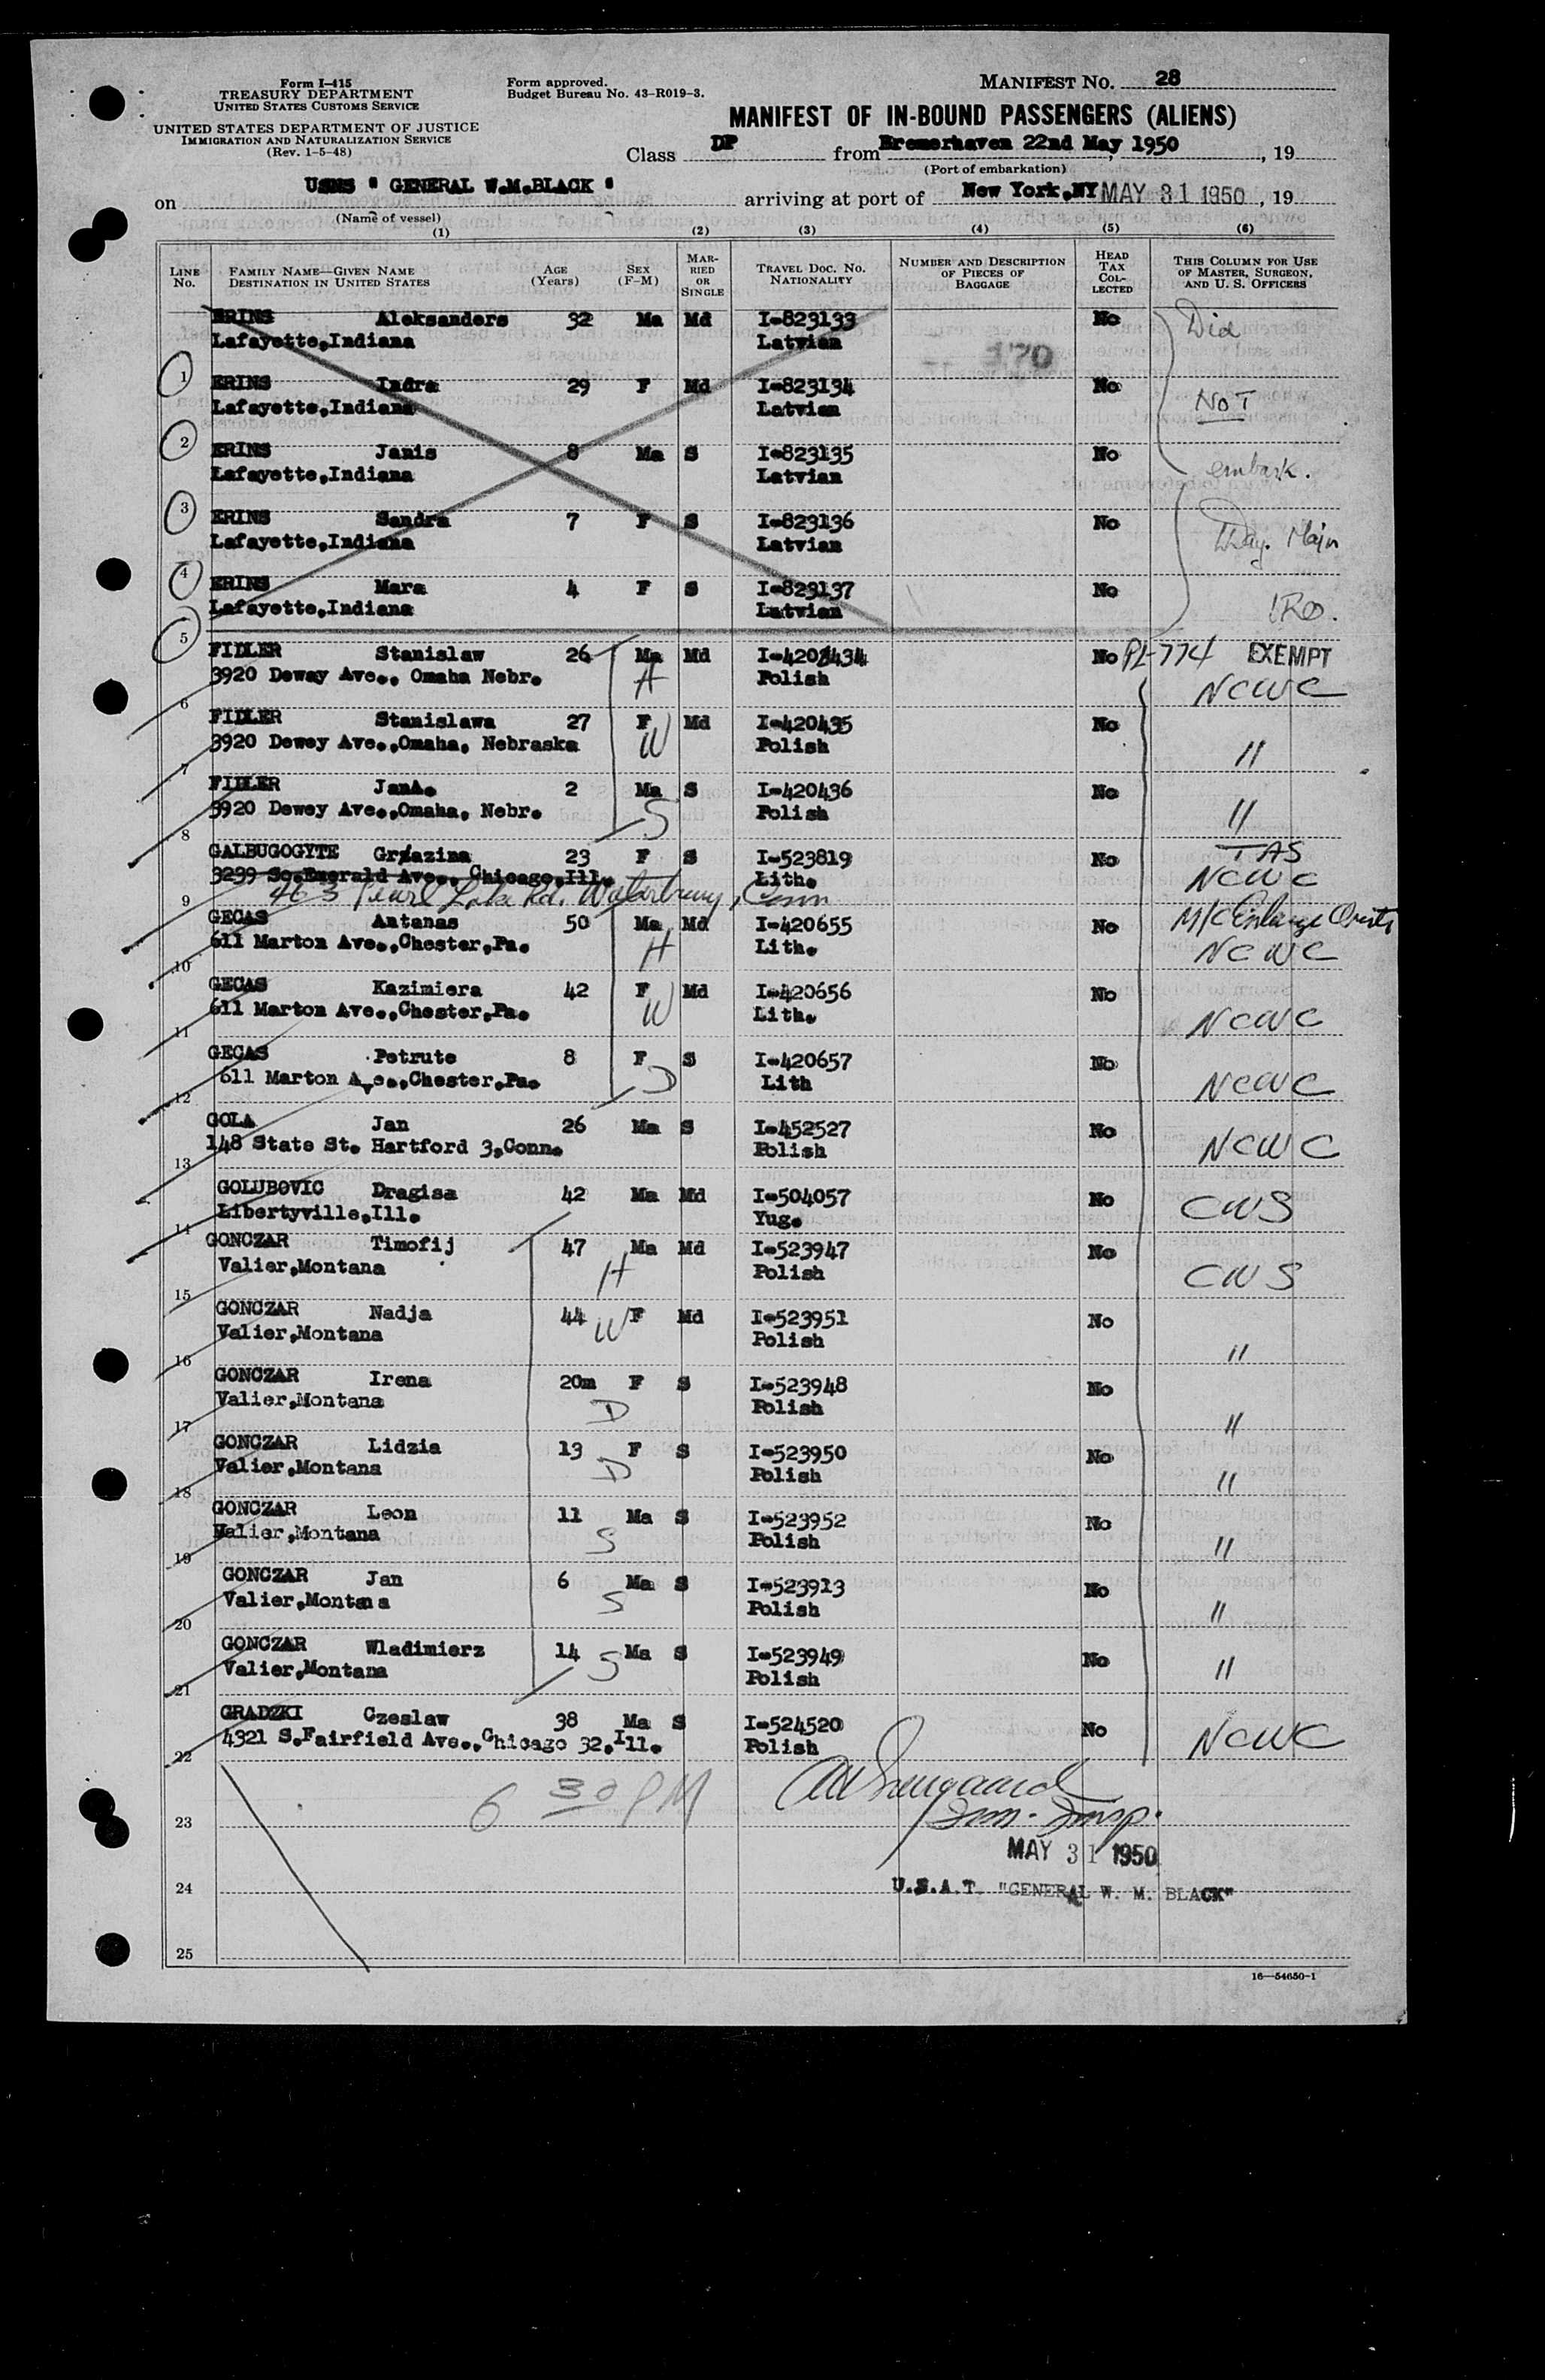 Form I-415
TREASURY DEPARTMENT
UNITED STATES CUSTOMS SERVICE
UNITED STATES DEPARTMENT OF JUSTICE
IMMIGRATION AND NATURALIZATION SERVICE
(Rev. 1-5-48)
Form approved.
Budget Bureau No. 43-R019-3.
MANIFEST NO. 28
MANIFEST OF IN-BOUND PASSENGERS (ALIENS)
Class DP from Bremerhaven 22nd May 1950, 19
(Port of embarkation)
on USNS " GENERAL W.M.BLACK " arriving at port of New York,NY MAY 31 1950, 19
(Name of vessel)
(1) (2) (3) (4) (5) (6)
LINE No. FAMILY NAME—GIVEN NAME DESTINATION IN UNITED STATES AGE (Years) SEX (F-M) MARRIED OR SINGLE TRAVEL DOC. NO. NATIONALITY NUMBER AND DESCRIPTION OF PIECES OF BAGGAGE HEAD TAX COLLECTED THIS COLUMN FOR USE OF MASTER, SURGEON, AND U. S. OFFICERS
ERINS Aleksanders 32 Ma Md I-823133 No Did
Lafayette,Indiana Latvian 370
1 ERINS Indra 29 F Md I-823134 No
Lafayette,Indiana Latvian NOT
2 ERINS Janis 8 Ma S I-823135 No
Lafayette,Indiana Latvian embark.
3 ERINS Sandra 7 F S I-823136 No
Lafayette,Indiana Latvian
4 ERINS Mara 4 F S I-823137 No
Lafayette,Indiana Latvian IRO.
5 FIDLER Stanislaw 26 Ma Md I-420434 No PL-774 EXEMPT
3920 Dewey Ave., Omaha Nebr. H Polish NCWC
6 FIDLER Stanislawa 27 F Md I-420435 No
3920 Dewey Ave.,Omaha, Nebraska W Polish "
7 FIDLER Jan. 2 Ma S I-420436 No
3920 Dewey Ave.,Omaha, Nebr. S Polish "
8 GALBUGOGYTE Grazina 23 F S I-523819 No TAS
3299 So.Emerald Ave., Chicago,Ill. Lith. NCWC
463 Pearl Lake Rd. Waterbury, Conn
9 GECAS Antanas 50 Ma Md I-420655 No
611 Marton Ave.,Chester,Pa. H Lith. NCWC
10 GECAS Kazimiera 42 F Md I-420656 No
611 Marton Ave.,Chester,Pa. W Lith. NCWC
11 GECAS Petrute 8 F S I-420657 No
611 Marton Ave.,Chester,Pa. D Lith NCWC
12 GOLA Jan 26 Ma S I-452527 No
148 State St. Hartford 3,Conn. Polish NCWC
13 GOLUBOVIC Dragisa 42 Ma Md I-504057 No CWS
Libertyville,Ill. Yug.
14 GONCZAR Timofij 47 Ma Md I-523947 No
Valier,Montana H Polish CWS
15 GONCZAR Nadja 44 F Md I-523951 No
Valier,Montana W Polish "
16 GONCZAR Irena 20m F S I-523948 No
Valier,Montana D Polish "
17 GONCZAR Lidzia 13 F S I-523950 No
Valier,Montana D Polish "
18 GONCZAR Leon 11 Ma S I-523952 No
Valier,Montana S Polish "
19 GONCZAR Jan 6 Ma S I-523913 No
Valier,Montana S Polish "
20 GONCZAR Wladimierz 14 Ma S I-523949 No
Valier,Montana S Polish "
21 GRADZKI Czeslaw 38 Ma S I-524520 No
4321 S.Fairfield Ave.,Chicago 32,Ill. Polish NCWC
22
6 30 PM
23 Imm. Insp.
MAY 31 1950
24 U.S.A.T. "GENERAL W. M. BLACK"
25
16—54650-1